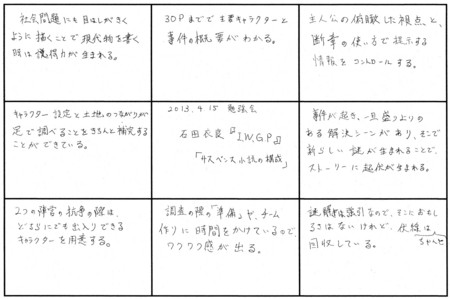 社会問題にも目くばせがきく
ように描くことで現代物を書く
時は説得力が生まれる。
30Pまでで主要キャラクターと
事件の概要がわかる。
主人公の俯瞰した視点と、
断章の使い方で提示する
情報をコントロールする。
キャラクター設定と土地のつながりが
足で調べることをきちんと補完する
ことができている。
2013.4.15 勉強会
石田衣良『I.W.G.P』
「サスペンス小説の構成」
事件が起き、一旦盛り上りの
ある解決シーンがあり、そこで
新しい謎が生まれることで、
ストーリーに起伏が生まれる。
2つの陣営の抗争の際は、
どちらにでも出入りできる
キャラクターを用意する。
調査の際の「準備」や、チーム
作りに時間をかけているので、
ワクワク感が出る。
謎解きは強引なので、そこにおもし
ろさはないけれど、伏線は
ちゃんと
回収している。